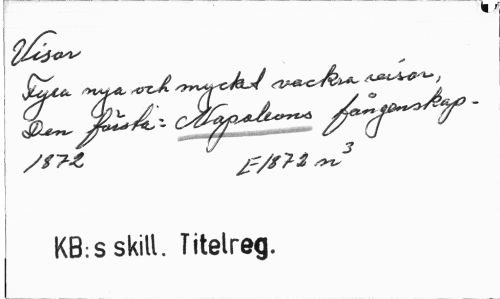 Visor
Fyra nya och mycket vackra visor,
Den första: Napoleons fångenskap.
1872 E1872 n3
KB:s skill. Titelreg.